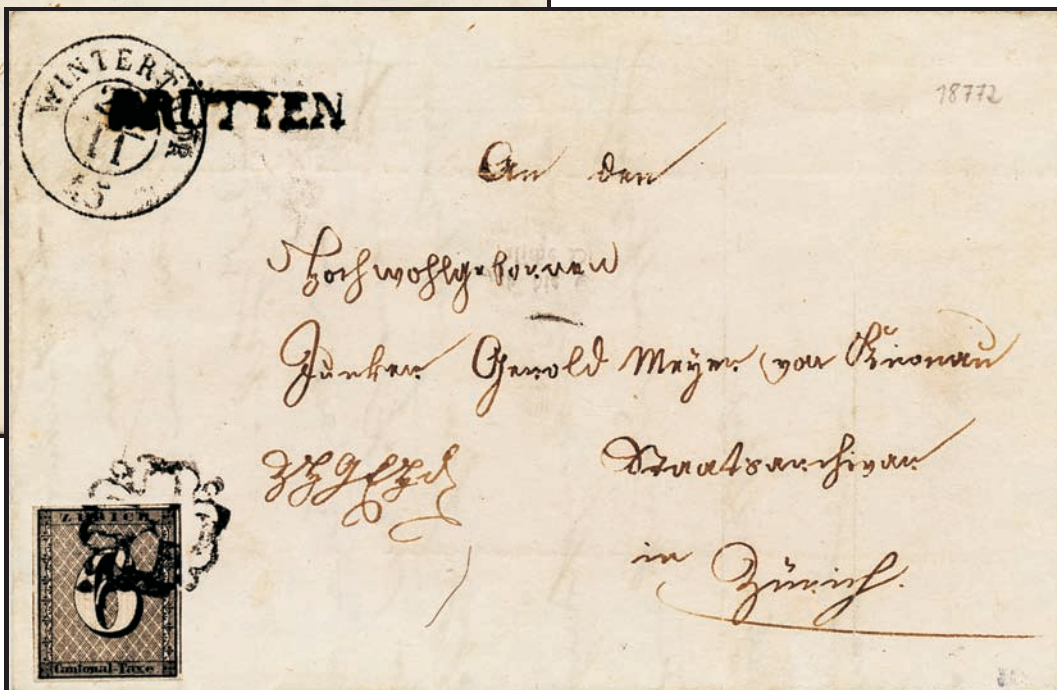 WINTERTHUR
11
45
BRÜTTEN
18772
An den
Hochwohlgebornen
Junker Gerold Meyer von Knonau
Staatsarchivar
in
Zürich.
ZÜRICH
6
Cantonal-Taxe